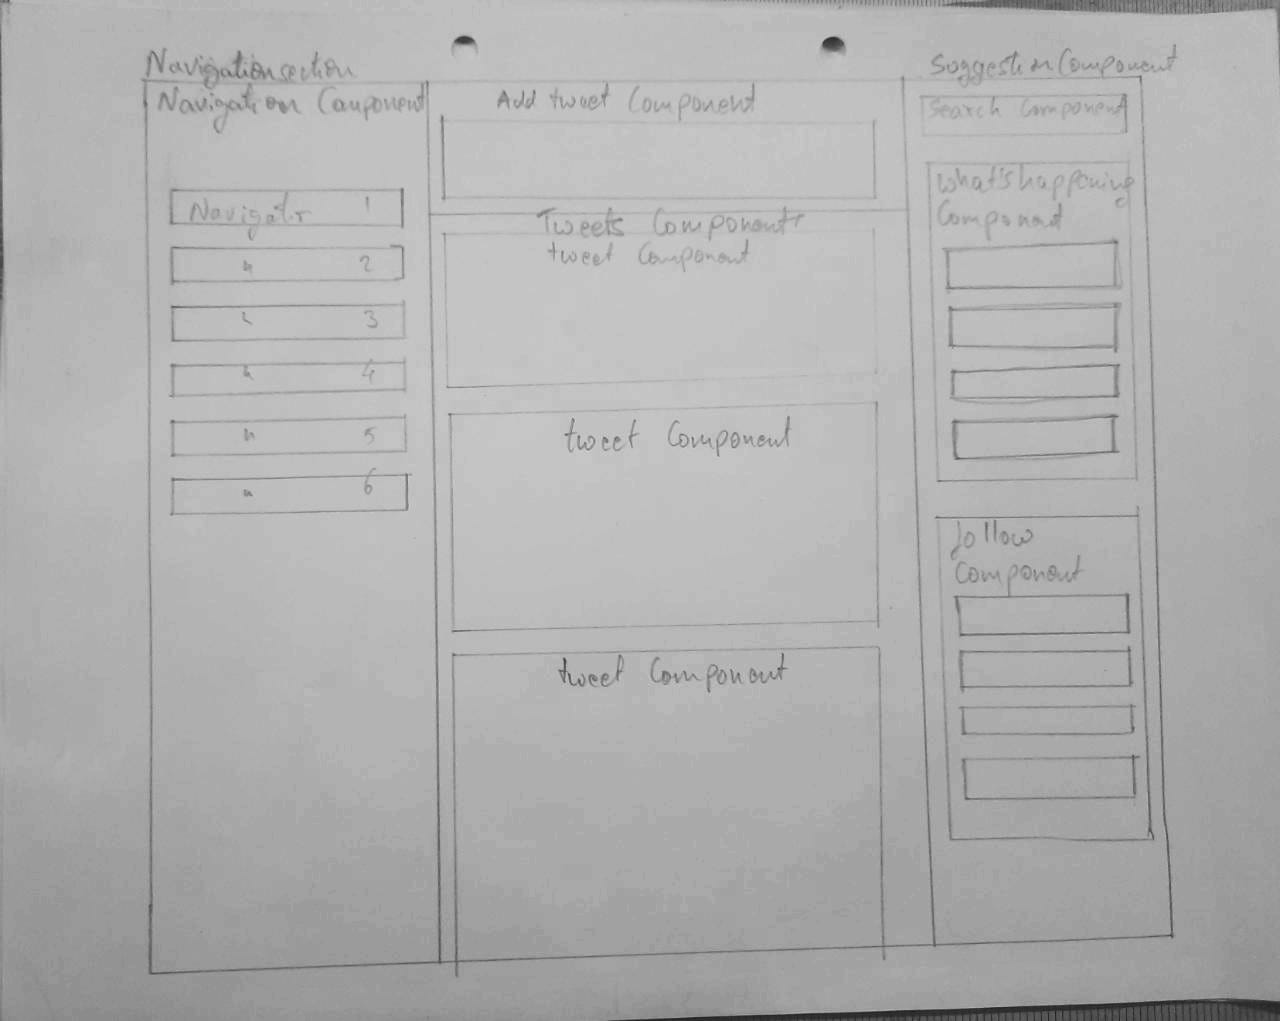 Navigation section
Navigation Component
Navigator 1
" 2
" 3
" 4
" 5
" 6
Add tweet Component
Tweets Component
tweet Component
tweet Component
tweet Component
Suggestion Component
Search Component
What's happening
Component
follow
Component